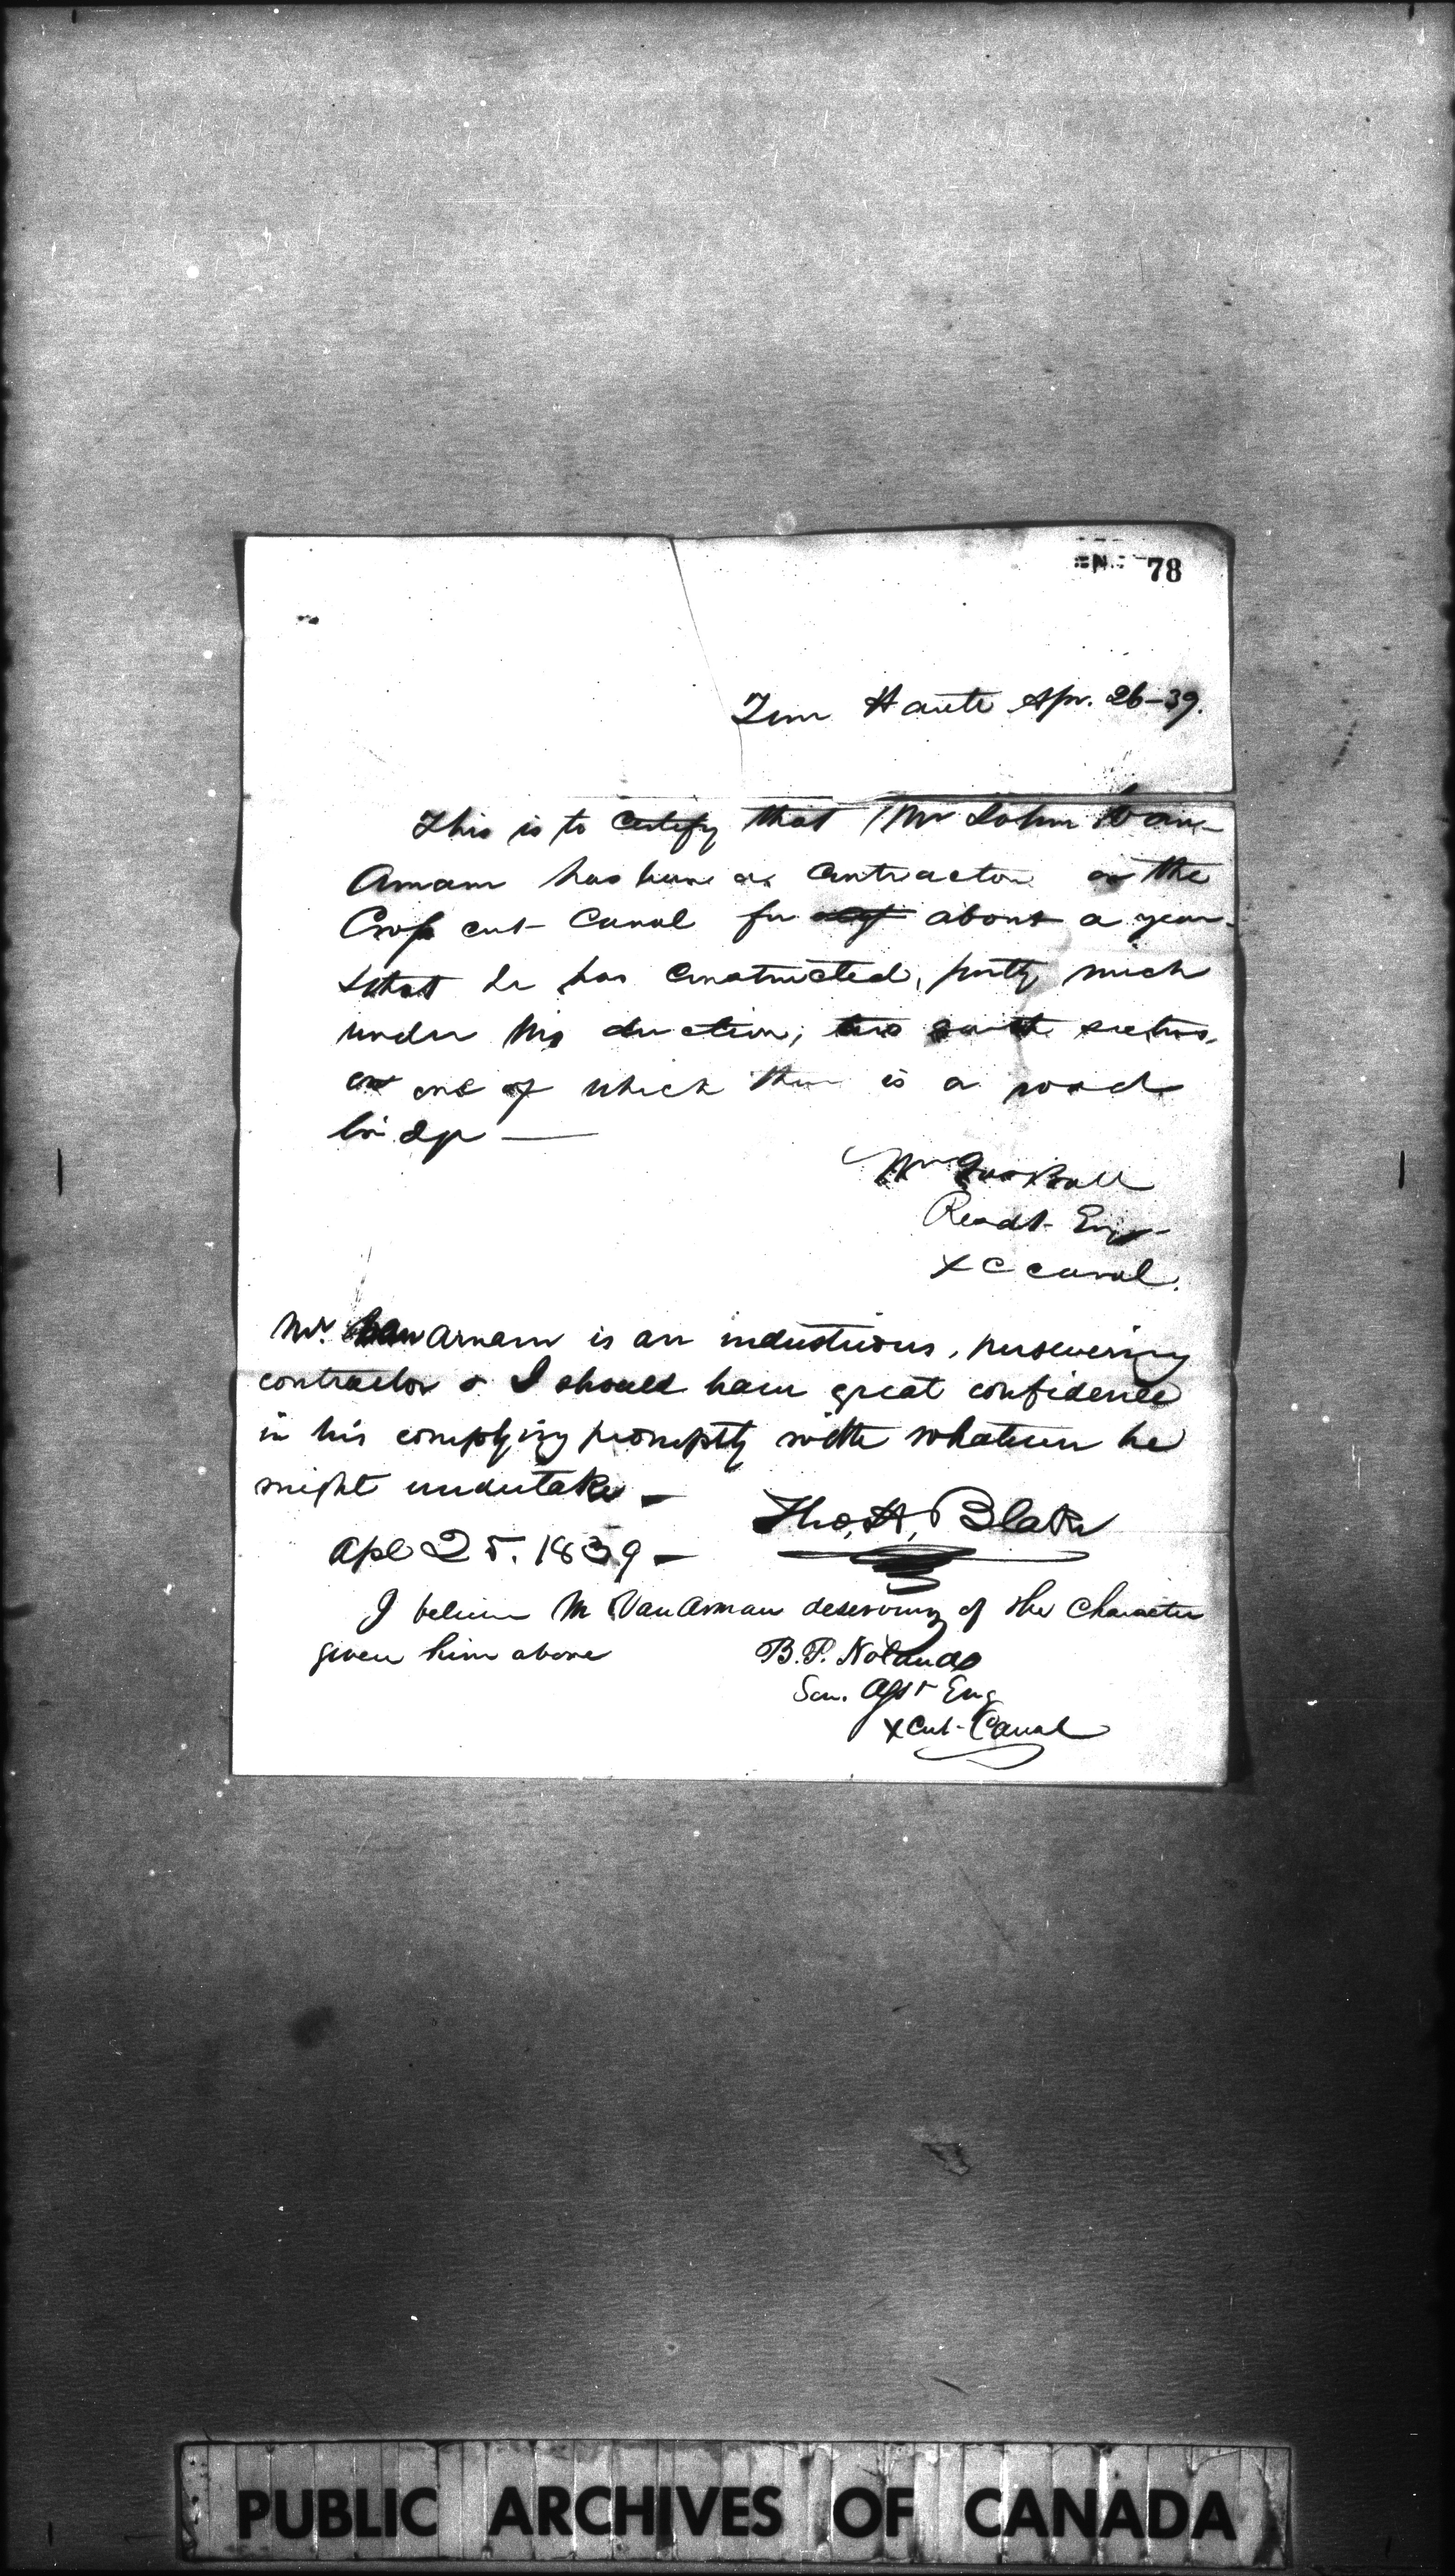 78
Terre Haute Apr. 26-39.
This is to Certify that Mr John Van
Arnam has been a Contractor on the
Cross cut Canal for about a year
& that he has Constructed, pretty much
under my direction, two sections,
on one of which there is a road
bridge —
Wm
Resdt Engr
X C Canal.
Mr. Van Arnam is an industrious, persevering
contractor & I should have great confidence
in his complying promptly with whatever he
might undertake —
Tho. H. Blake
Apl 25. 1839 —
I believe Mr Van Arnam deserving of the Character
given him above
B. P. Noland
Sen. Asst Eng
X Cut-Canal
PUBLIC ARCHIVES OF CANADA